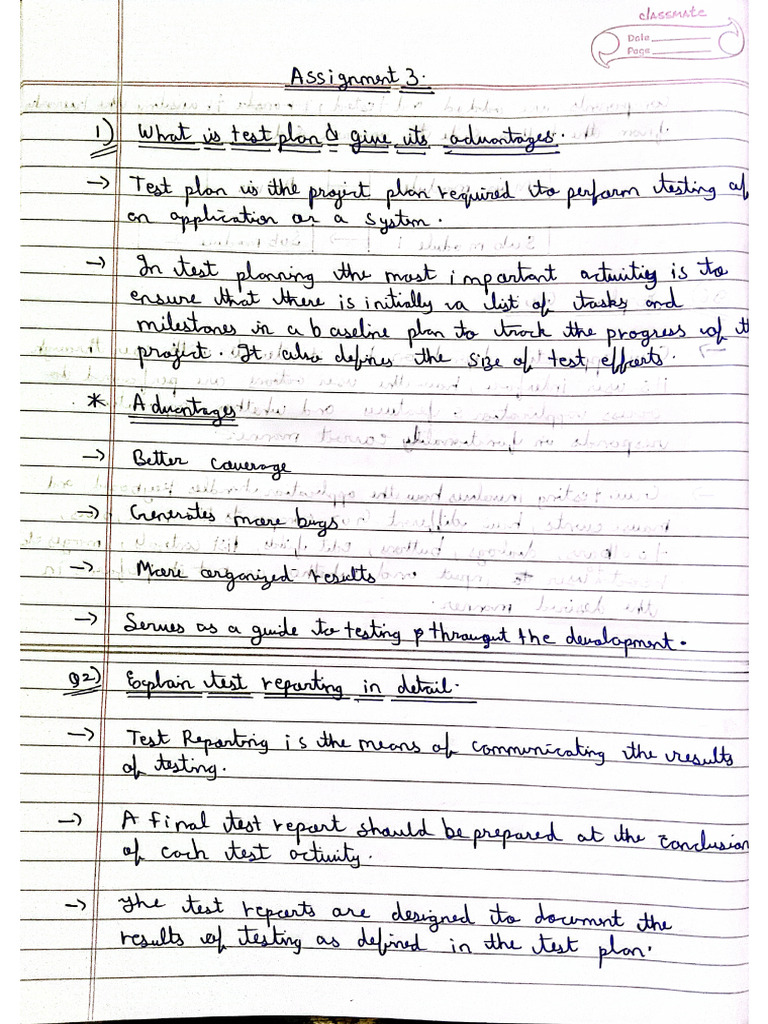 classmate
Date
Page
Assignment 3.
1) What is test plan & give its advantages.
→ Test plan is the project plan required to perform testing of
an application or a system.
→ In test planning the most important activities is to
ensure that there is initially a list of tasks and
milestones in a baseline plan to track the progress of th
project. It also defines the size of test efforts.
* Advantages
→ Better coverage
→ Generates more bugs
→ More organized results
→ Serves as a guide to testing throughut the development.
Q2) Explain test reporting in detail.
→ Test Reporting is the means of communicating the results
of testing.
→ A final test report should be prepared at the conclusion
of each test activity.
→ The test reports are designed to document the
results of testing as defined in the test plan.